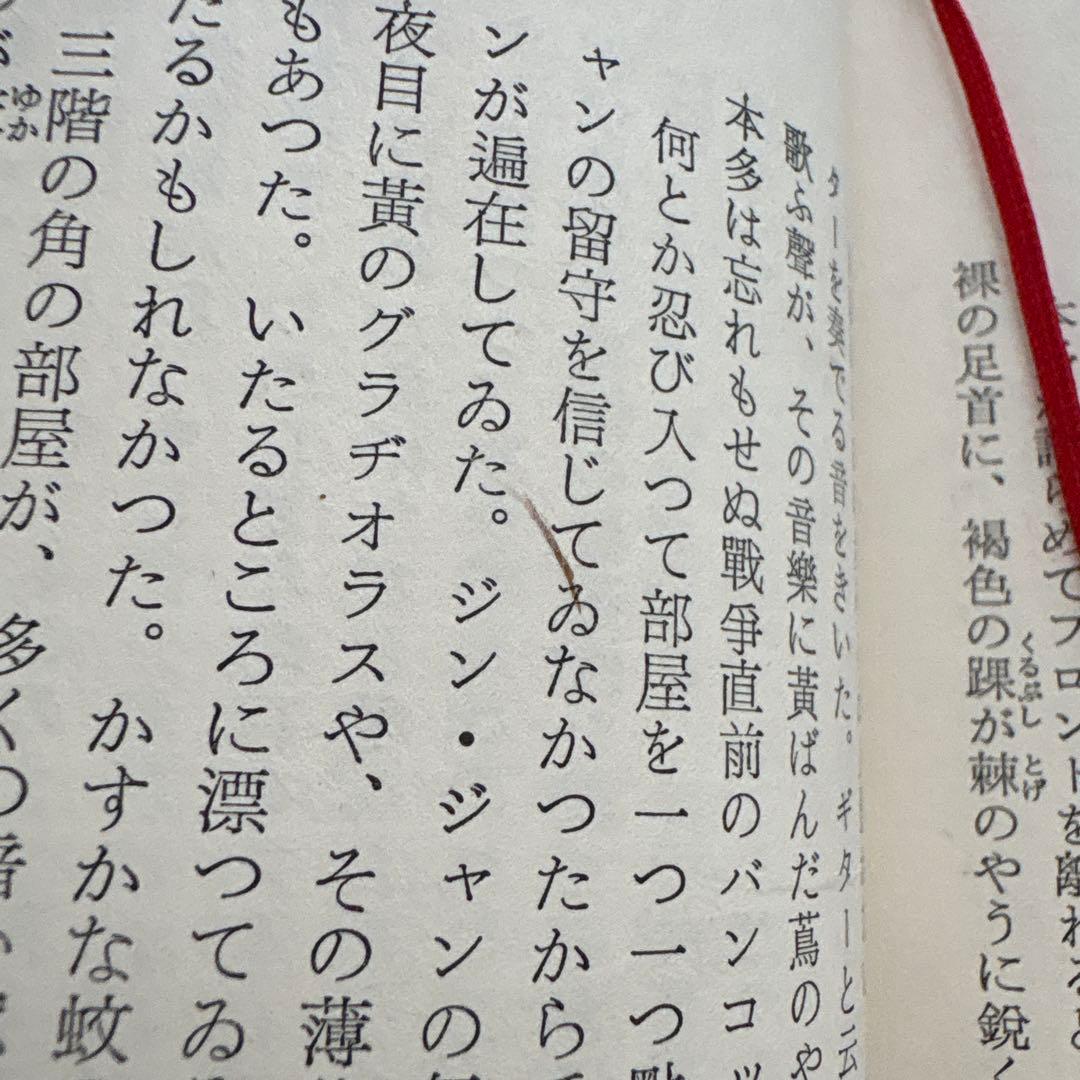 を離れると
めてフロントを離れ
裸の足首に、褐色の踝が棘のやうに鋭く
くるぶし
とげ
ターを奏でる音をきいた。ギターと云
歌ふ聲が、その音樂に黃ばんだ蔦のや
本多は忘れもせぬ戰爭直前のバンコッ
何とか忍び入つて部屋を一つ一つ點
ャンの留守を信じてゐなかつたから
ンが遍在してゐた。ジン・ジャンの
夜目に黃のグラヂオラスや、その薄
もあつた。いたるところに漂つてゐ
たるかもしれなかつた。かすかな蚊
三階の角の部屋が、多くの暗い
ゆか